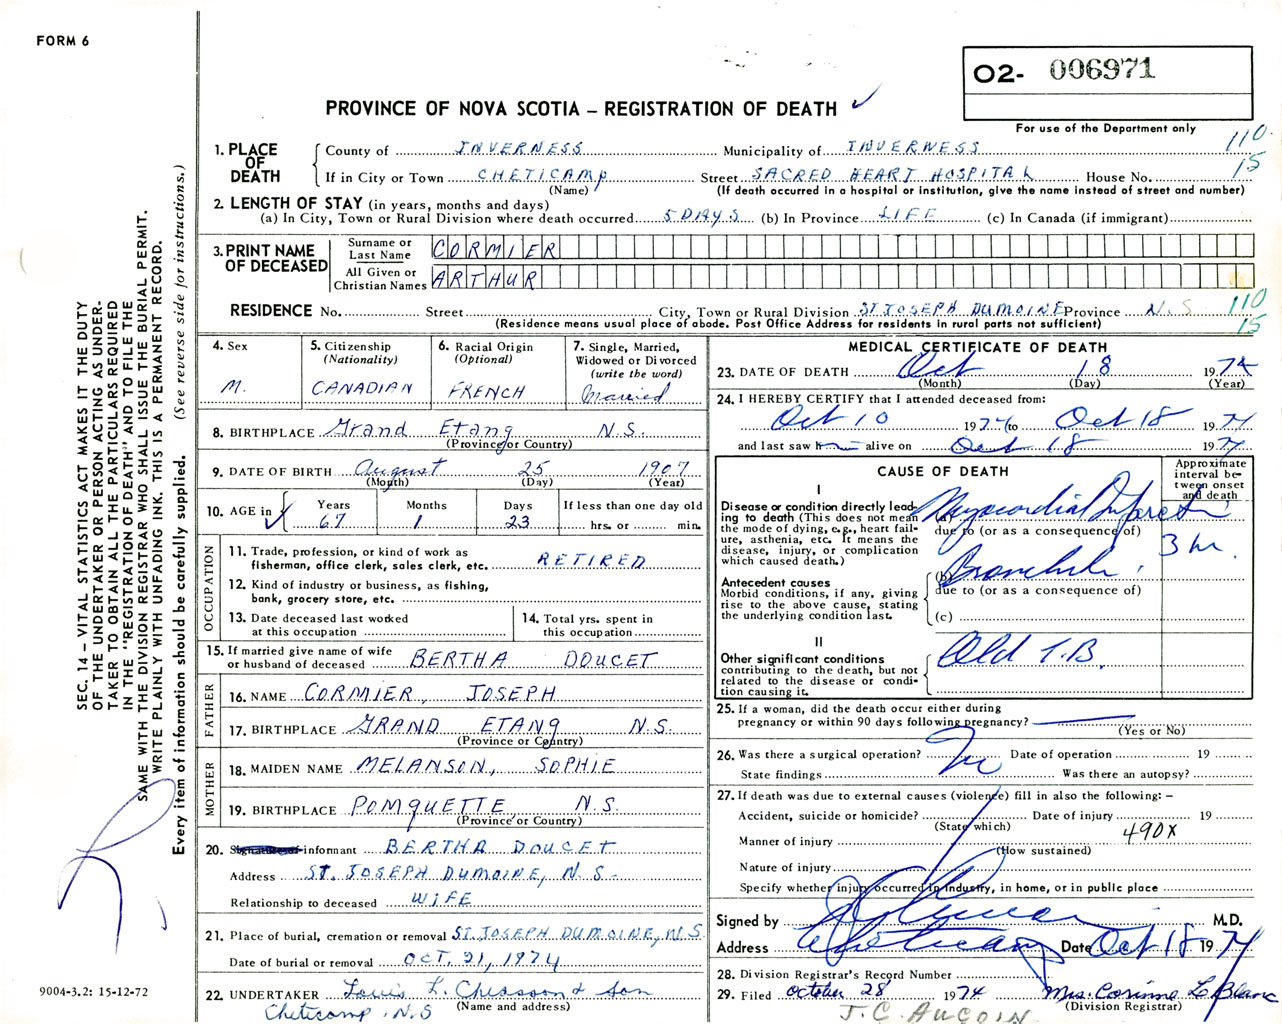 FORM 6
O2- 006971
PROVINCE OF NOVA SCOTIA – REGISTRATION OF DEATH
For use of the Department only
1. PLACE OF DEATH
County of INVERNESS Municipality of INVERNESS 110
If in City or Town CHETICAMP Street SACRED HEART HOSPITAL House No. 15
(Name) (If death occurred in a hospital or institution, give the name instead of street and number)
2. LENGTH OF STAY (in years, months and days)
(a) In City, Town or Rural Division where death occurred 5 DAYS (b) In Province LIFE (c) In Canada (if immigrant)
3. PRINT NAME OF DECEASED
Surname or Last Name CORMIER
All Given or Christian Names ARTHUR
RESIDENCE No. Street City, Town or Rural Division ST JOSEPH DUMOINE Province N.S 110
15
(Residence means usual place of abode. Post Office Address for residents in rural parts not sufficient)
4. Sex
M.
5. Citizenship
(Nationality)
CANADIAN
6. Racial Origin
(Optional)
FRENCH
7. Single, Married,
Widowed or Divorced
(write the word)
Married
8. BIRTHPLACE Grand Etang N.S.
(Province or Country)
9. DATE OF BIRTH August 25 1907
(Month) (Day) (Year)
10. AGE in
Years Months Days If less than one day old
67 1 23 hrs. or min.
OCCUPATION
11. Trade, profession, or kind of work as
fisherman, office clerk, sales clerk, etc. RETIRED
12. Kind of industry or business, as fishing,
bank, grocery store, etc.
13. Date deceased last worked
at this occupation
14. Total yrs. spent in
this occupation
15. If married give name of wife
or husband of deceased BERTHA DOUCET
FATHER
16. NAME CORMIER, JOSEPH
17. BIRTHPLACE GRAND ETANG N.S.
(Province or Country)
MOTHER
18. MAIDEN NAME MELANSON, SOPHIE
19. BIRTHPLACE POMQUETTE N.S.
(Province or Country)
20. Signature of informant BERTHA DOUCET
Address ST. JOSEPH DUMOINE, N.S.
Relationship to deceased WIFE
21. Place of burial, cremation or removal ST. JOSEPH DUMOINE, N.S.
Date of burial or removal OCT. 21, 1974
22. UNDERTAKER Louis L. Chiasson & Son
(Name and address)
Cheticamp, N.S
MEDICAL CERTIFICATE OF DEATH
23. DATE OF DEATH Oct 18 1974
(Month) (Day) (Year)
24. I HEREBY CERTIFY that I attended deceased from:
Oct 10 1974 to Oct 18 1974
and last saw alive on Oct 18 1974
CAUSE OF DEATH
Approximate
interval be-
tween onset
and death
I
Disease or condition directly lead-
ing to death (This does not mean
the mode of dying, e.g., heart fail-
ure, asthenia, etc. It means the
disease, injury, or complication
which caused death.)
(a) Myocardial Infarction
due to (or as a consequence of)
3 hr.
Antecedent causes
Morbid conditions, if any, giving
rise to the above cause, stating
the underlying condition last.
(b) Bronchitis
due to (or as a consequence of)
(c)
II
Other significant conditions
contributing to the death, but not
related to the disease or condi-
tion causing it.
Old T.B.
25. If a woman, did the death occur either during
pregnancy or within 90 days following pregnancy?
(Yes or No)
26. Was there a surgical operation? No Date of operation 19
State findings Was there an autopsy?
27. If death was due to external causes (violence) fill in also the following: –
Accident, suicide or homicide? Date of injury 19
(State which)
490X
Manner of injury
(How sustained)
Nature of injury
Specify whether injury occurred in industry, in home, or in public place
Signed by M.D.
Address Cheticamp Date Oct 18 1974
28. Division Registrar's Record Number
29. Filed October 28 1974 Mrs. Corinne LeBlanc
(Division Registrar)
J.C. AUCOIN
SEC. 14 – VITAL STATISTICS ACT MAKES IT THE DUTY
OF THE UNDERTAKER OR PERSON ACTING AS UNDER-
TAKER TO OBTAIN ALL THE PARTICULARS REQUIRED
IN THE "REGISTRATION OF DEATH" AND TO FILE THE
SAME WITH THE DIVISION REGISTRAR WHO SHALL ISSUE THE BURIAL PERMIT.
WRITE PLAINLY WITH UNFADING INK. THIS IS A PERMANENT RECORD.
Every item of information should be carefully supplied. (See reverse side for instructions.)
9004-3.2: 15-12-72